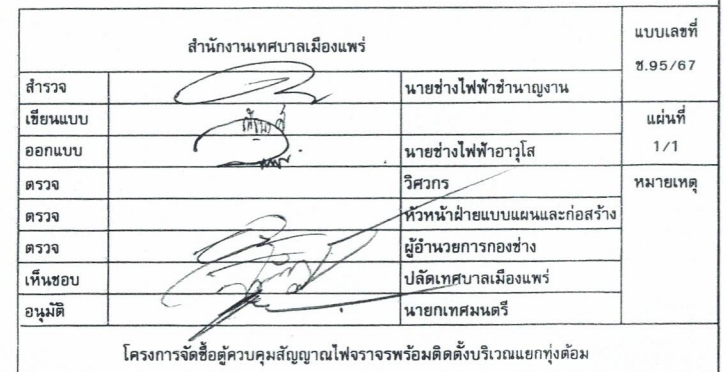 สำนักงานเทศบาลเมืองแพร่
แบบเลขที่
ช.95/67
สำรวจ นายช่างไฟฟ้าชำนาญงาน
เขียนแบบ
แผ่นที่
1/1
ออกแบบ นายช่างไฟฟ้าอาวุโส
ตรวจ วิศวกร
หมายเหตุ
ตรวจ หัวหน้าฝ่ายแบบแผนและก่อสร้าง
ตรวจ ผู้อำนวยการกองช่าง
เห็นชอบ ปลัดเทศบาลเมืองแพร่
อนุมัติ นายกเทศมนตรี
โครงการจัดซื้อตู้ควบคุมสัญญาณไฟจราจรพร้อมติดตั้งบริเวณแยกทุ่งต้อม